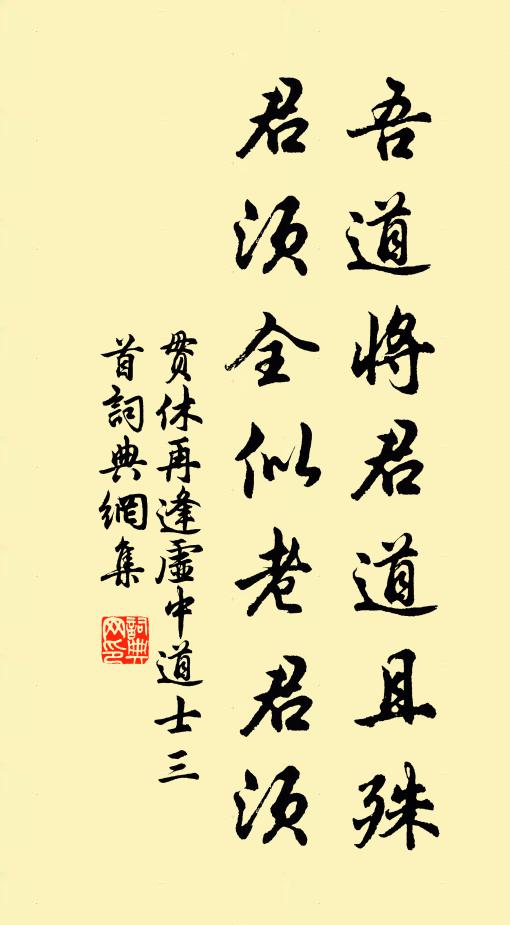 吾道將君道且殊
君須全似老君須
貫休再逢虛中道士三
首詞典網集
詞典
网印